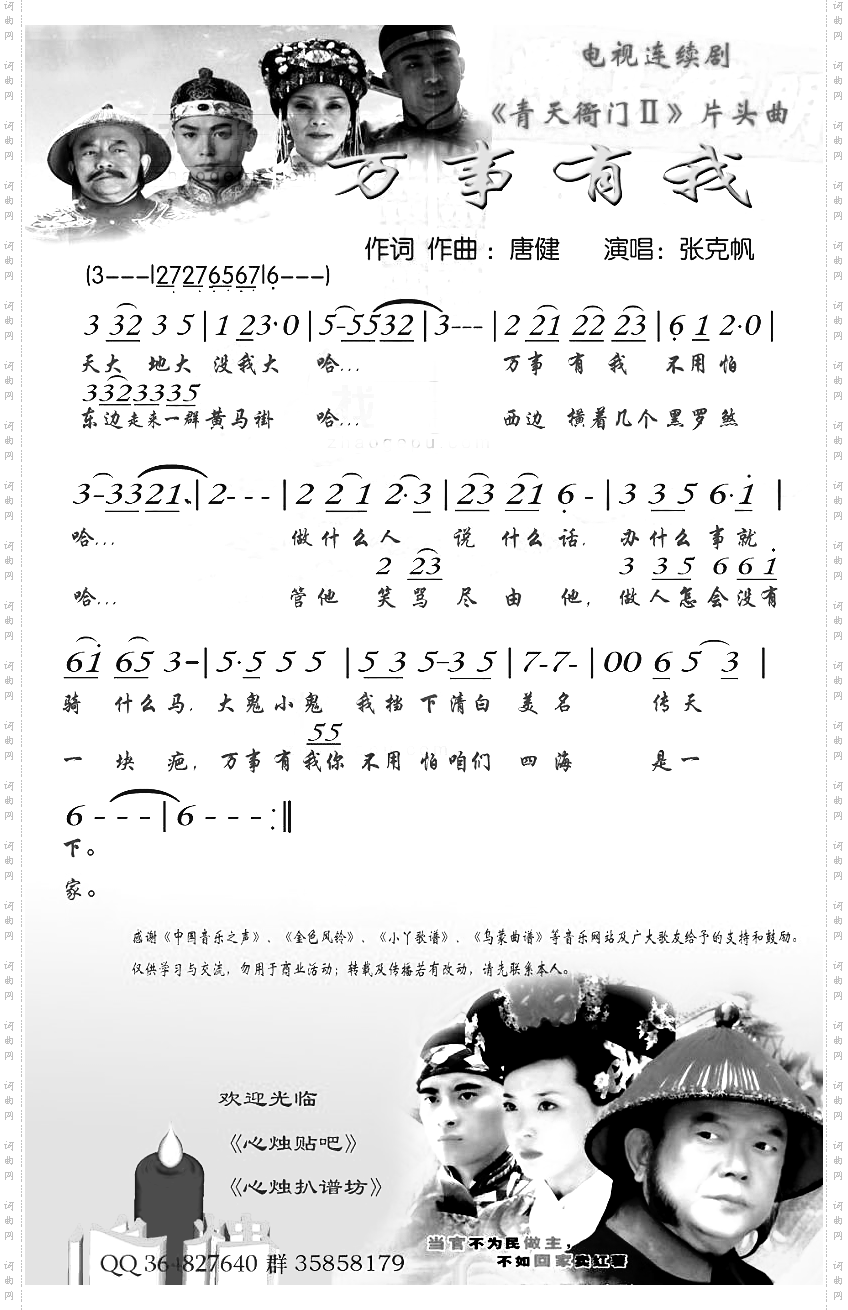 电视连续剧
《青天衙门Ⅱ》片头曲
万事有我
作词 作曲：唐健 演唱：张克帆
(3---|27276567|6---)
3 32 3 5|1 23·0|5-5532|3---|2 21 22 23|6 1 2·0|
天大 地大 没我大 哈... 万事 有 我 不用怕
332333 35
东边走来一群黄马褂 哈... 西边 横着几个黑罗煞
3-3321|2---|2 2 1 2·3|23 21 6 -|3 3 5 6·1|
哈... 做什么人 说 什么话, 办什么 事就
2 23 3 3 5 6 6 1
哈... 管他 笑 骂 尽 由 他, 做人怎会没有
61 65 3-|5·5 5 5|5 3 5-3 5|7-7-|00 6 5 3|
骑 什么马, 大鬼小鬼 我挡下清白 美名 传天
55
一 块 疤, 万事有我你 不用 怕咱们 四海 是一
6 - - -|6 - - -:‖
下。
家。
感谢《中国音乐之声》、《金色风铃》、《小丫歌谱》、《乌蒙曲谱》等音乐网站及广大歌友给予的支持和鼓励。
仅供学习与交流，勿用于商业活动；转载及传播若有改动，请先联系本人。
欢迎光临
《心烛贴吧》
《心烛扒谱坊》
当官不为民做主，
不如回家卖红薯
QQ 364827640 群 35858179